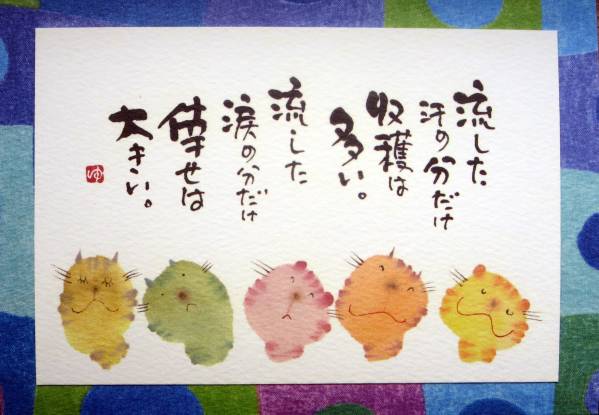 流した
汗の分だけ
収穫は
多い。
流した
涙の分だけ
倖せは
大きい。